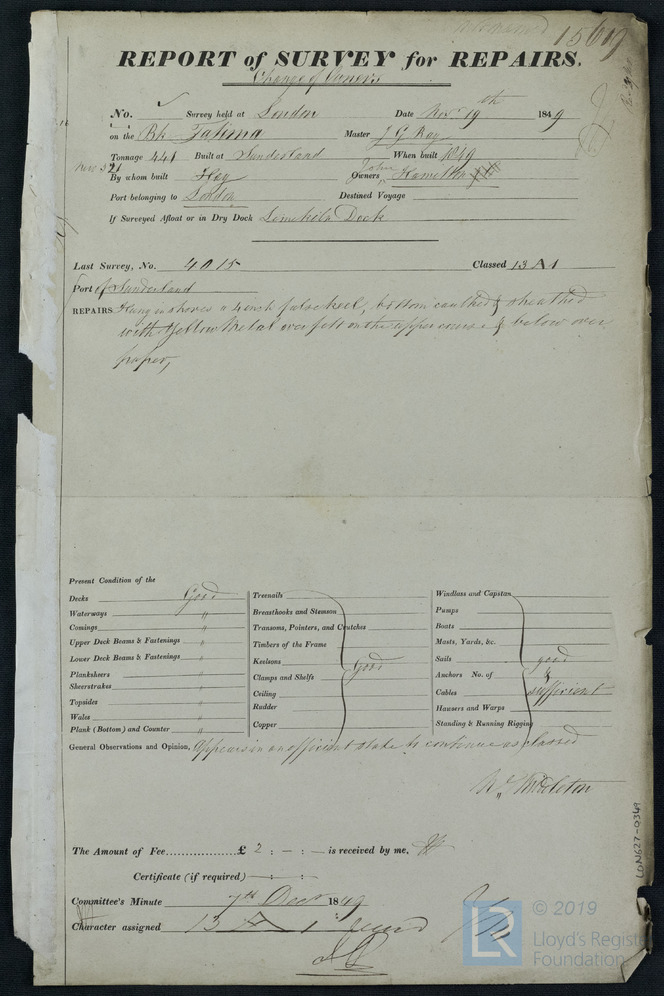 15619
REPORT of SURVEY for REPAIRS.
Change of Owners
No. Survey held at London Date Nov 19th 1849
on the Bk Fatima Master J G Ray
Tonnage 441 Built at Sunderland When built 1849
521
By whom built Hay Owners John Hamelton
Port belonging to London Destined Voyage
If Surveyed Afloat or in Dry Dock Limekiln Dock
Last Survey, No. 4015 Classed 13 A 1
Port of Sunderland
REPAIRS Hung in shores a 4 inch false keel, bottom caulked & sheathed
with Yellow Metal over felt on the upper course & below over
paper,
Present Condition of the
Decks Good
Waterways "
Comings "
Upper Deck Beams & Fastenings "
Lower Deck Beams & Fastenings "
Planksheers "
Sheerstrakes "
Topsides "
Wales "
Plank (Bottom) and Counter "
Treenails
Breasthooks and Stemson
Transoms, Pointers, and Crutches
Timbers of the Frame
Keelsons Good
Clamps and Shelfs
Ceiling
Rudder
Copper
Windlass and Capstan
Pumps
Boats
Masts, Yards, &c.
Sails good
Anchors No. of &
Cables sufficient
Hawsers and Warps
Standing & Running Rigging
General Observations and Opinion, Appears in an efficient state to continue as classed
Wm Middleton
The Amount of Fee £ 2 : - : - is received by me,
Certificate (if required) - : - :
Committee's Minute 7th Decr 1849
Character assigned 13 A 1
LON627-0349
LR
© 2019
Lloyd's Register
Foundation